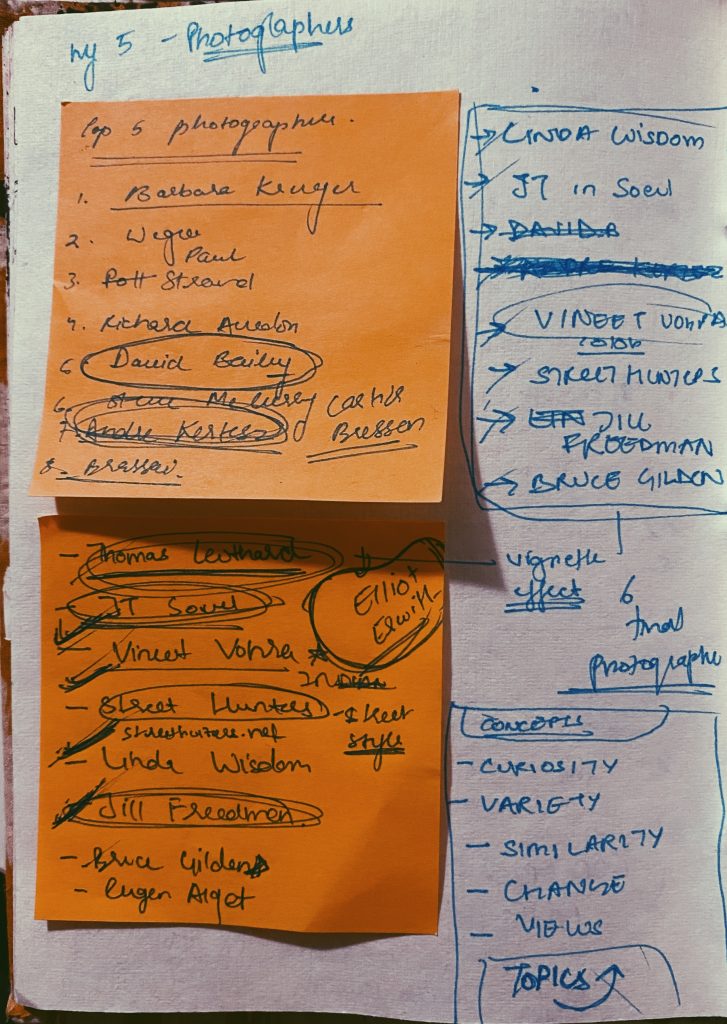 my 5 - Photographers
Top 5 photographers.
1. Barbara Kruger
2. Wegee
Paul
3. Pott Strand
4. Richard Avedon
5. David Bailey
6. Steve McCurry
Cartier
Bressen
7. Andre Kertesz
8. Brassai.
- Thomas Leuthard
- JT Soeul
- Vineet Vohra
INDIAN
- Street Hunters
streethunters.net
- Street
style
- Linda Wisdom
- Jill Freedman
- Bruce Gilden
- Eugen Atget
Elliot
Erwitt
→ LINDA WISDOM
→ JT in Soeul
→ DAVID B
→ VINEET VOHRA
→ STREET HUNTERS
→ JILL
FREEDMAN
→ BRUCE GILDEN
vignette
effect
6
final
photographers
CONCEPTS
- CURIOSITY
- VARIETY
- SIMILARITY
- CHANGE
- VIEWS
TOPICS